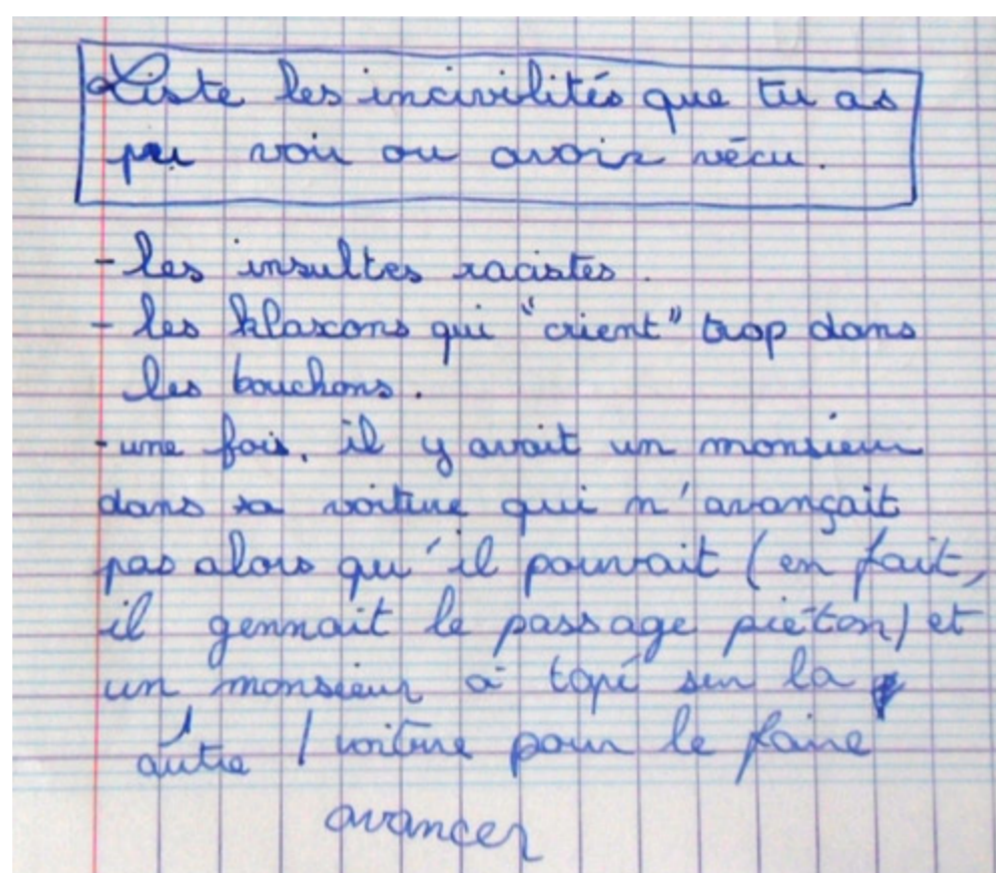 Liste les incivilités que tu as
pu voir ou avoir vécu.
- les insultes racistes.
- les klaxons qui "crient" trop dans
les bouchons.
- une fois, il y avait un monsieur
dans sa voiture qui n'avançait
pas alors qu'il pouvait (en fait,
il gennait le passage piéton) et
un monsieur a tapé sur la
autre / voiture pour le faire
avancer